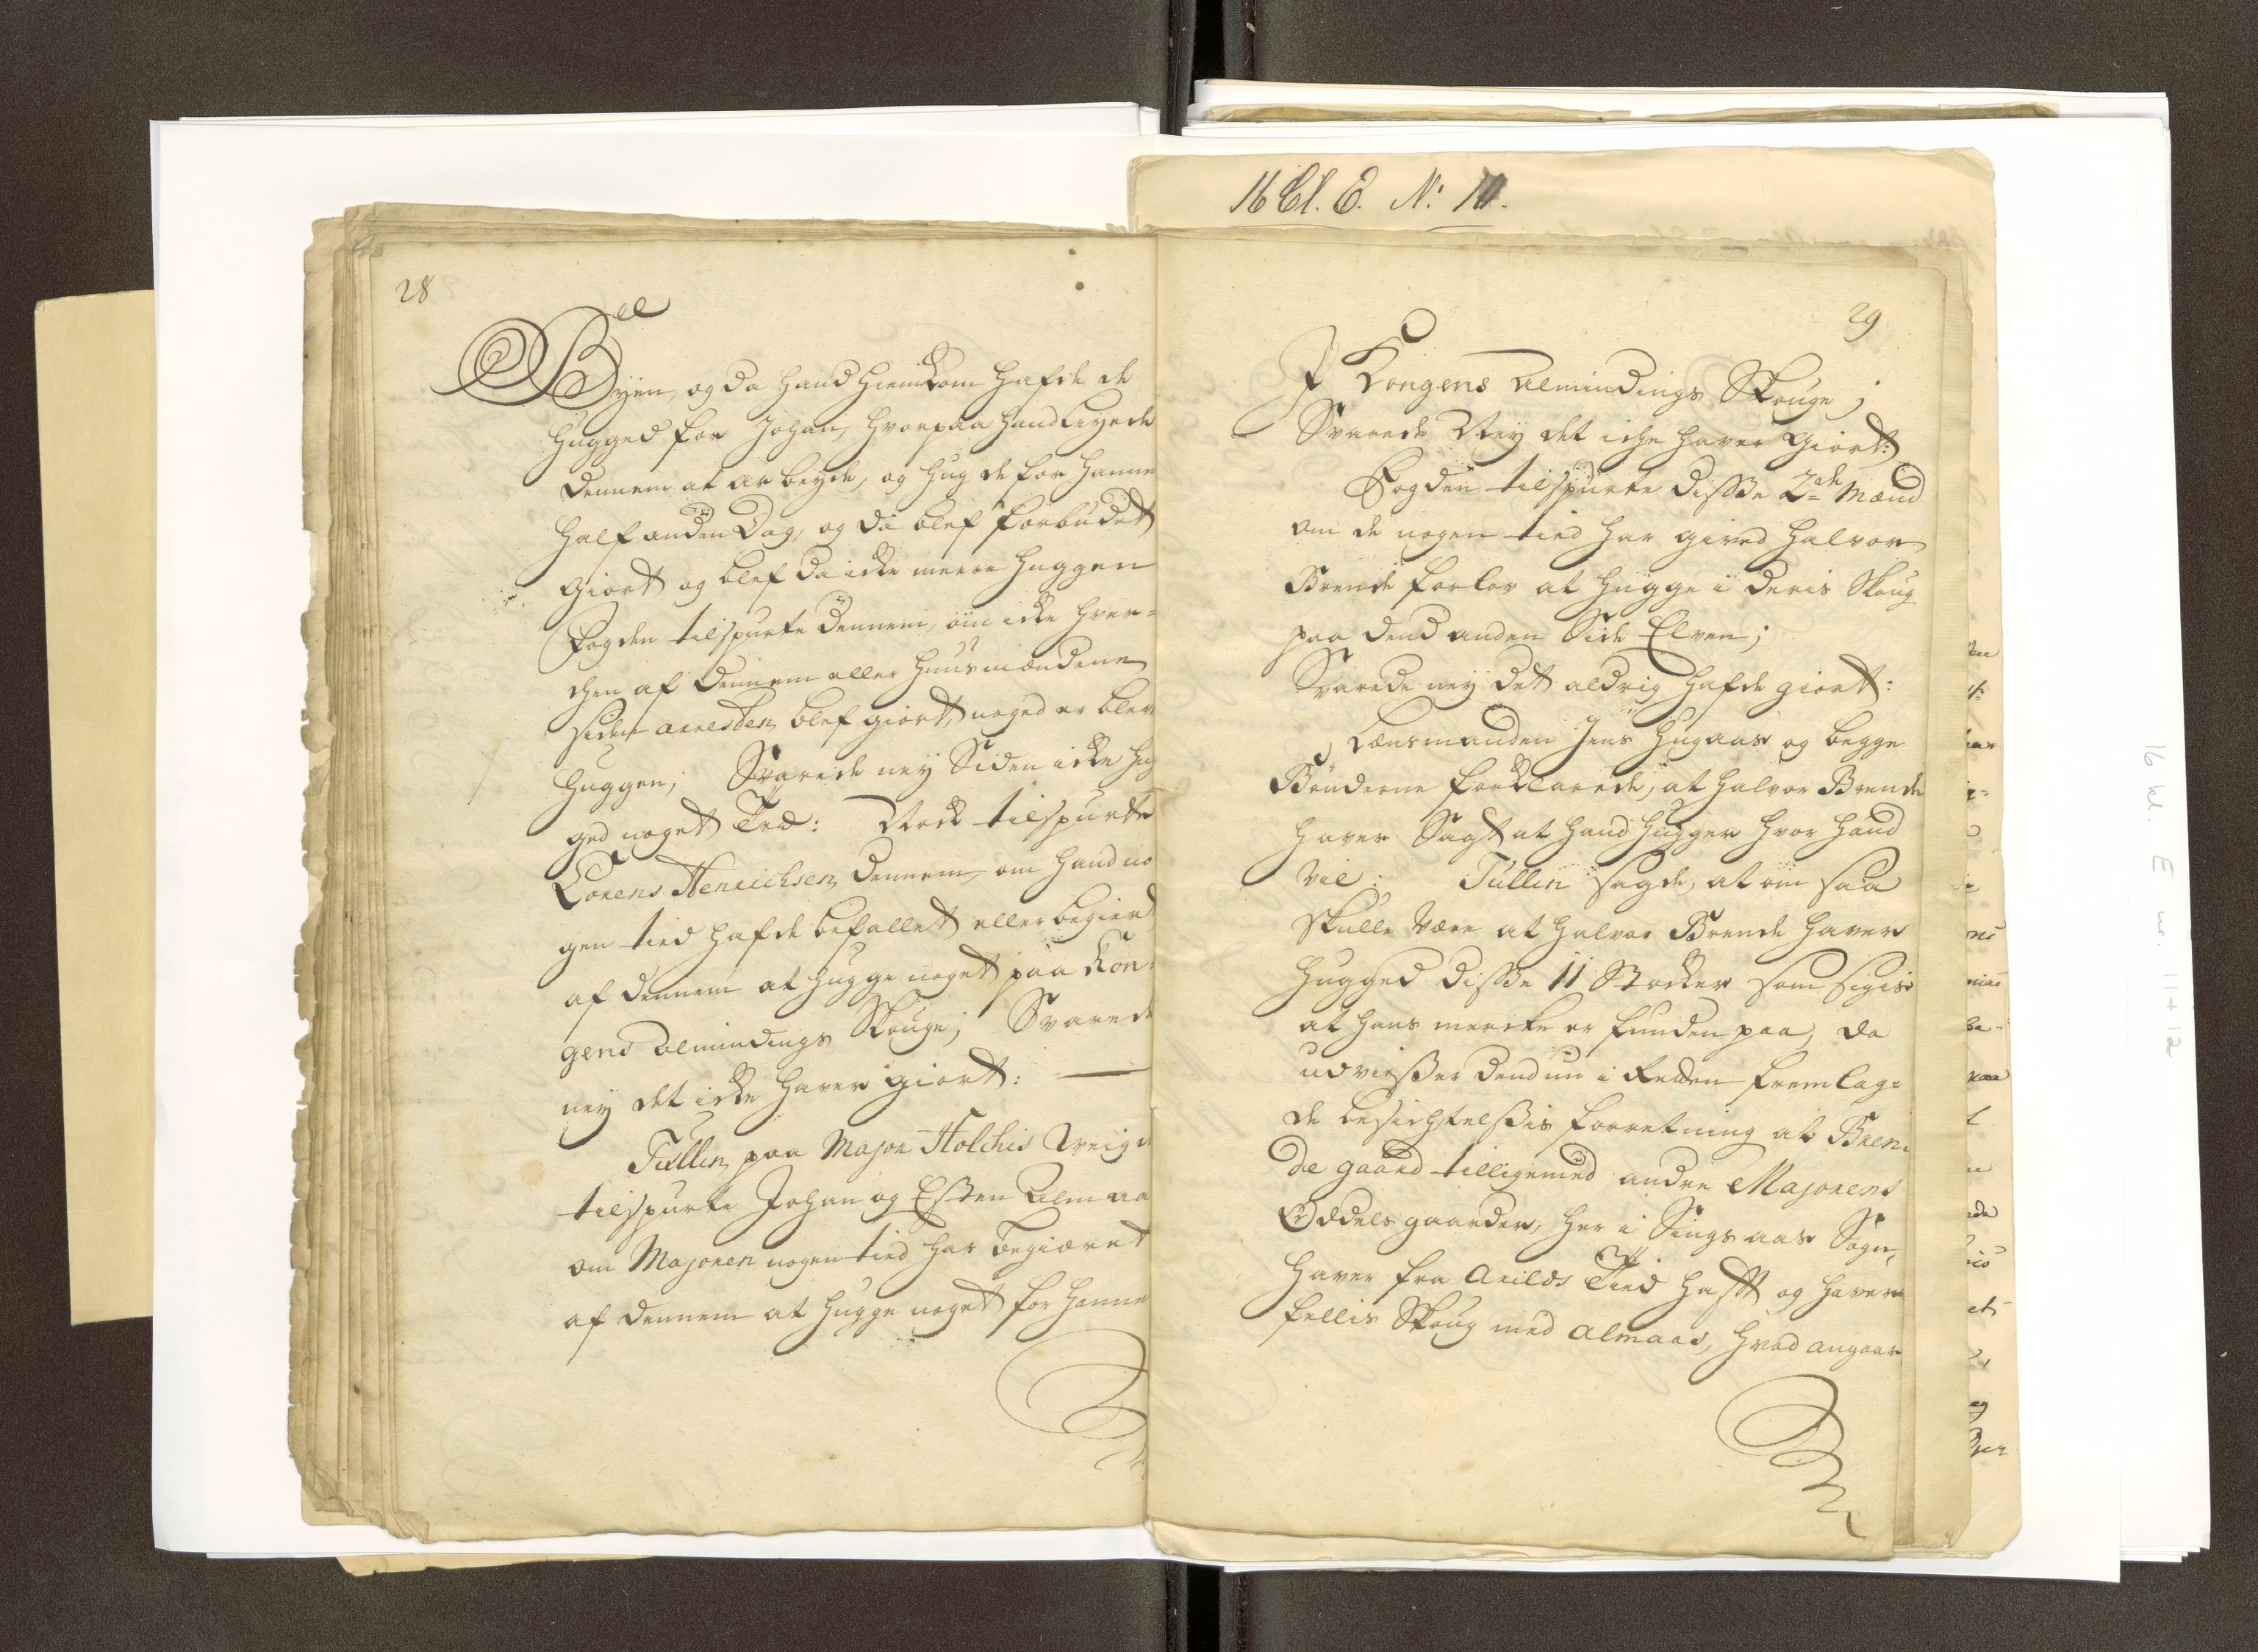 16 Cl. E. N: 11.
28
Byen, og da hand hiemkom hafde de
hugged for Johan, hvorpaa hand leyede
dennem at arbeyde, og hug de for hanne
half anden Dag, og da blef forbudet
giort og blef da icke meere huggen
Fogden tilspurte dennem, om icke hver=
chen af dennem eller huusmændene
siden arresten blef giort, noged er blev
huggen; Svarede ney Siden icke hug
ged noget Træ: Nock tilspurte
Lorens Henrichsen dennem, om hand no
gen tied hafde befallet eller begiert
af dennem at hugge noget paa Kon=
gens Almindings Skouge; Svarede
ney det icke haver giort:
Tullin paa Major Holchis Weigne
tilspurte Johan og Esten Almaa
om Majoren nogen tied har begiæret
af dennem at hugge noget for hanne
29
I Kongens Almindings Skouge;
Svarede Ney det iche haver giort:
Fogden tilspurte disse 2de Mænd
om de nogen tied har gived Halvor
Brende forlov at hugge i deris Skoug
paa dend anden Side Elven;
Svarede ney det aldrig hafde giort:
Lænsmanden Jens Hugaas og begge
Bønderne forklarede, at Halvor Brende
haver Sagt at hand hugger hvor hand
vil: Tullin sagde, at om saa
skulle være at Halvor Brende haver
hugged disse 11 Stocker som sigis
at hans mercke er funden paa, da
udvisser dend nu i Retten fremlag=
de besichtelssis forretning at Bren=
de gaard tilligemed andre Majorens
Oddels gaarder, her i Singsaas Sogn,
haver fra Arilds Tied haft og haver
fellis Skoug med Almaas, hvad angaar
16 kl. E nr. 11+12